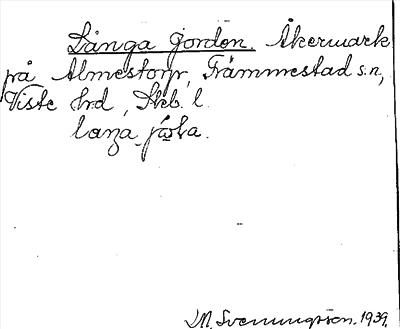 Långa jorden. Åkermark
på Almestorp, Främmestad s:n,
Viste hrd, Skb. l.
M. Svenningsson. 1939.